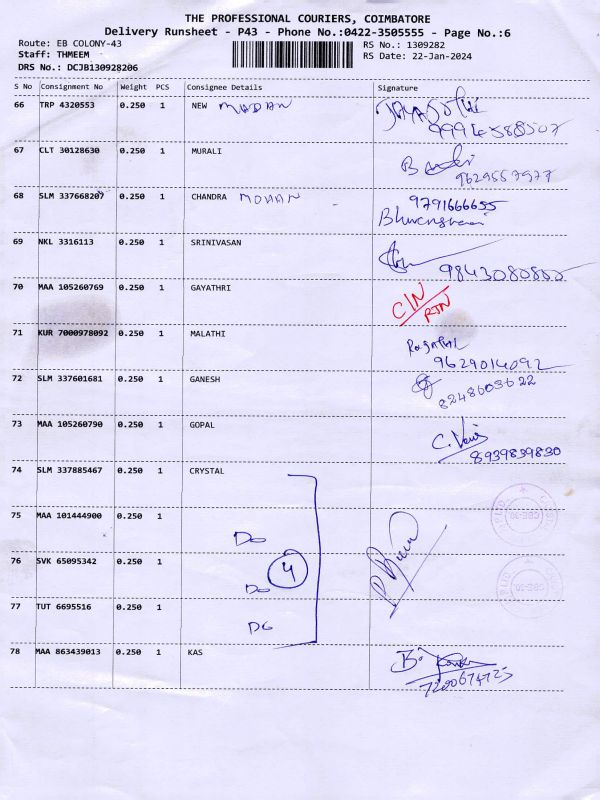 THE PROFESSIONAL COURIERS, COIMBATORE
Delivery Runsheet - P43 - Phone No.:0422-3505555 - Page No.:6
Route: EB COLONY-43
RS No.: 1309282
Staff: THMEEM
RS Date: 22-Jan-2024
DRS No.: DCJB130928206
S No Consignment No Weight PCS Consignee Details Signature
66 TRP 4320553 0.250 1 NEW MADAN
9994588507
67 CLT 30128630 0.250 1 MURALI
9629557977
68 SLM 337668207 0.250 1 CHANDRA MOHAN 9791666655
69 NKL 3316113 0.250 1 SRINIVASAN
9843080800
70 MAA 105260769 0.250 1 GAYATHRI CIN
RTN
71 KUR 7000978092 0.250 1 MALATHI
9629014092
72 SLM 337601681 0.250 1 GANESH
8248603622
73 MAA 105260790 0.250 1 GOPAL
8939839830
74 SLM 337885467 0.250 1 CRYSTAL
75 MAA 101444900 0.250 1
Do
76 SVK 65095342 0.250 1 4
Do
77 TUT 6695516 0.250 1
Do
78 MAA 863439013 0.250 1 KAS